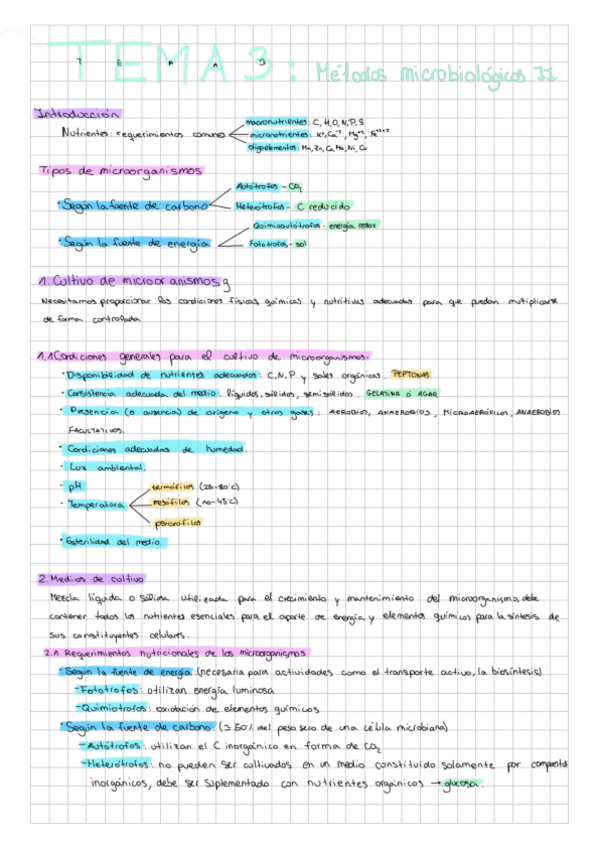 TEMA 3: Métodos microbiológicos II
T E M A 3
Introducción
Nutrientes: requerimientos comunes
macronutrientes: C, H, O, N, P, S
micronutrientes: K+, Ca+2, Mg+2, Fe+2+3
oligoelementos: Mn, Zn, Co, Mo, Ni, Cu
Tipos de microorganismos
· Según la fuente de carbono
Autótrofos - CO2
Heterótrofos - C reducido
· Según la fuente de energía
Quimioautótrofos - energía redox
Fototrofos - sol
1. Cultivo de microorganismos
Necesitamos proporcionar las condiciones físicas, químicas y nutritivas adecuadas para que puedan multiplicarse
de forma controlada
1.1 Condiciones generales para el cultivo de microorganismos.
· Disponibilidad de nutrientes adecuados: C, N, P y sales orgánicas. PEPTONAS
· Consistencia adecuada del medio: líquidos, sólidos, semisólidos. GELATINA ó AGAR
· Presencia (o ausencia) de oxígeno y otros gases: AEROBIOS, ANAEROBIOS, MICROAERÓFILOS, ANAEROBIOS
FACULTATIVOS.
· Condiciones adecuadas de humedad.
· Luz ambiental.
· pH
· Temperatura
termófilos (25-80°C)
mesófilos (10-45°C)
psicrófilos
· Esterilidad del medio.
2. Medios de cultivo
Mezcla líquida o sólida utilizada para el crecimiento y mantenimiento del microorganismo, debe
contener todos los nutrientes esenciales para el aporte de energía y elementos químicos para la síntesis de
sus constituyentes celulares.
2.1 Requerimientos nutricionales de los microorganismos
· Según la fuente de energía: (necesaria para actividades como el transporte activo, la biosíntesis)
- Fototrofos: utilizan energía luminosa
- Quimiotrofos: oxidación de elementos químicos
· Según la fuente de carbono: (≥50% del peso seco de una célula microbiana)
- Autótrofos: utilizan el C inorgánico en forma de CO2
- Heterótrofos: no pueden ser cultivados en un medio constituido solamente por compuestos
inorgánicos, debe ser suplementado con nutrientes orgánicos → glucosa.